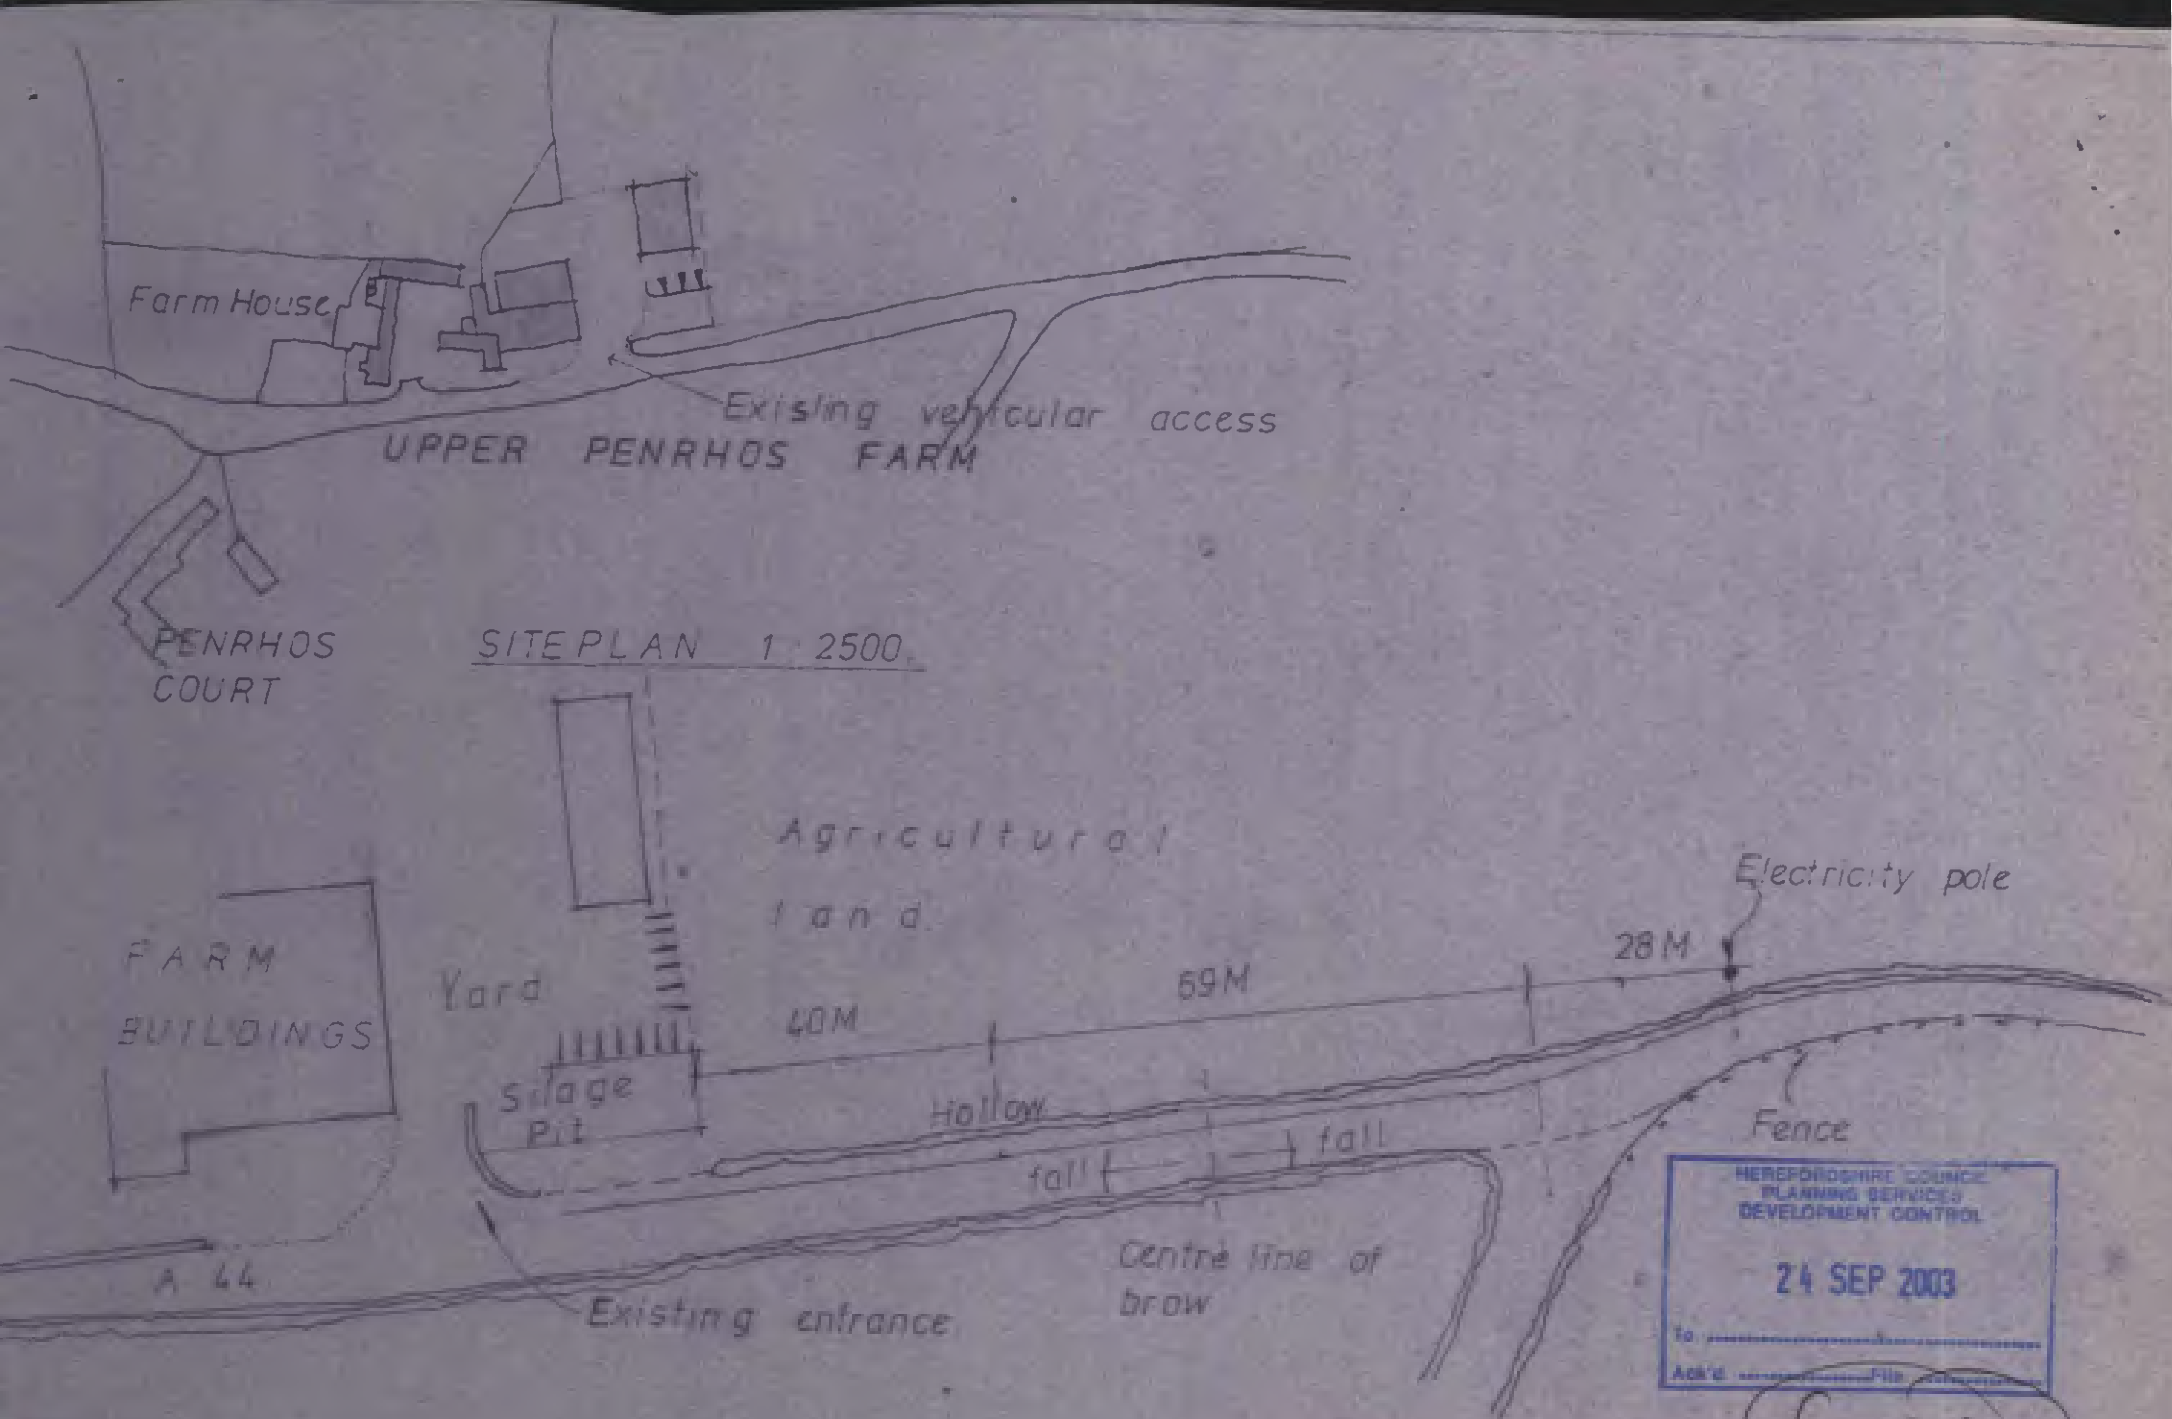 Farm House
Existing vehicular access
UPPER PENRHOS FARM
PENRHOS
COURT
SITE PLAN 1:2500
Agricultural
land
Electricity pole
FARM
BUILDINGS
Yard
28M
69M
40M
Silage
Pit
Hollow
fall
fall
Fence
A 44
Existing entrance
Centre line of
brow
HEREFORDSHIRE COUNCIL
PLANNING SERVICES
DEVELOPMENT CONTROL
24 SEP 2003
To
Ack'd File